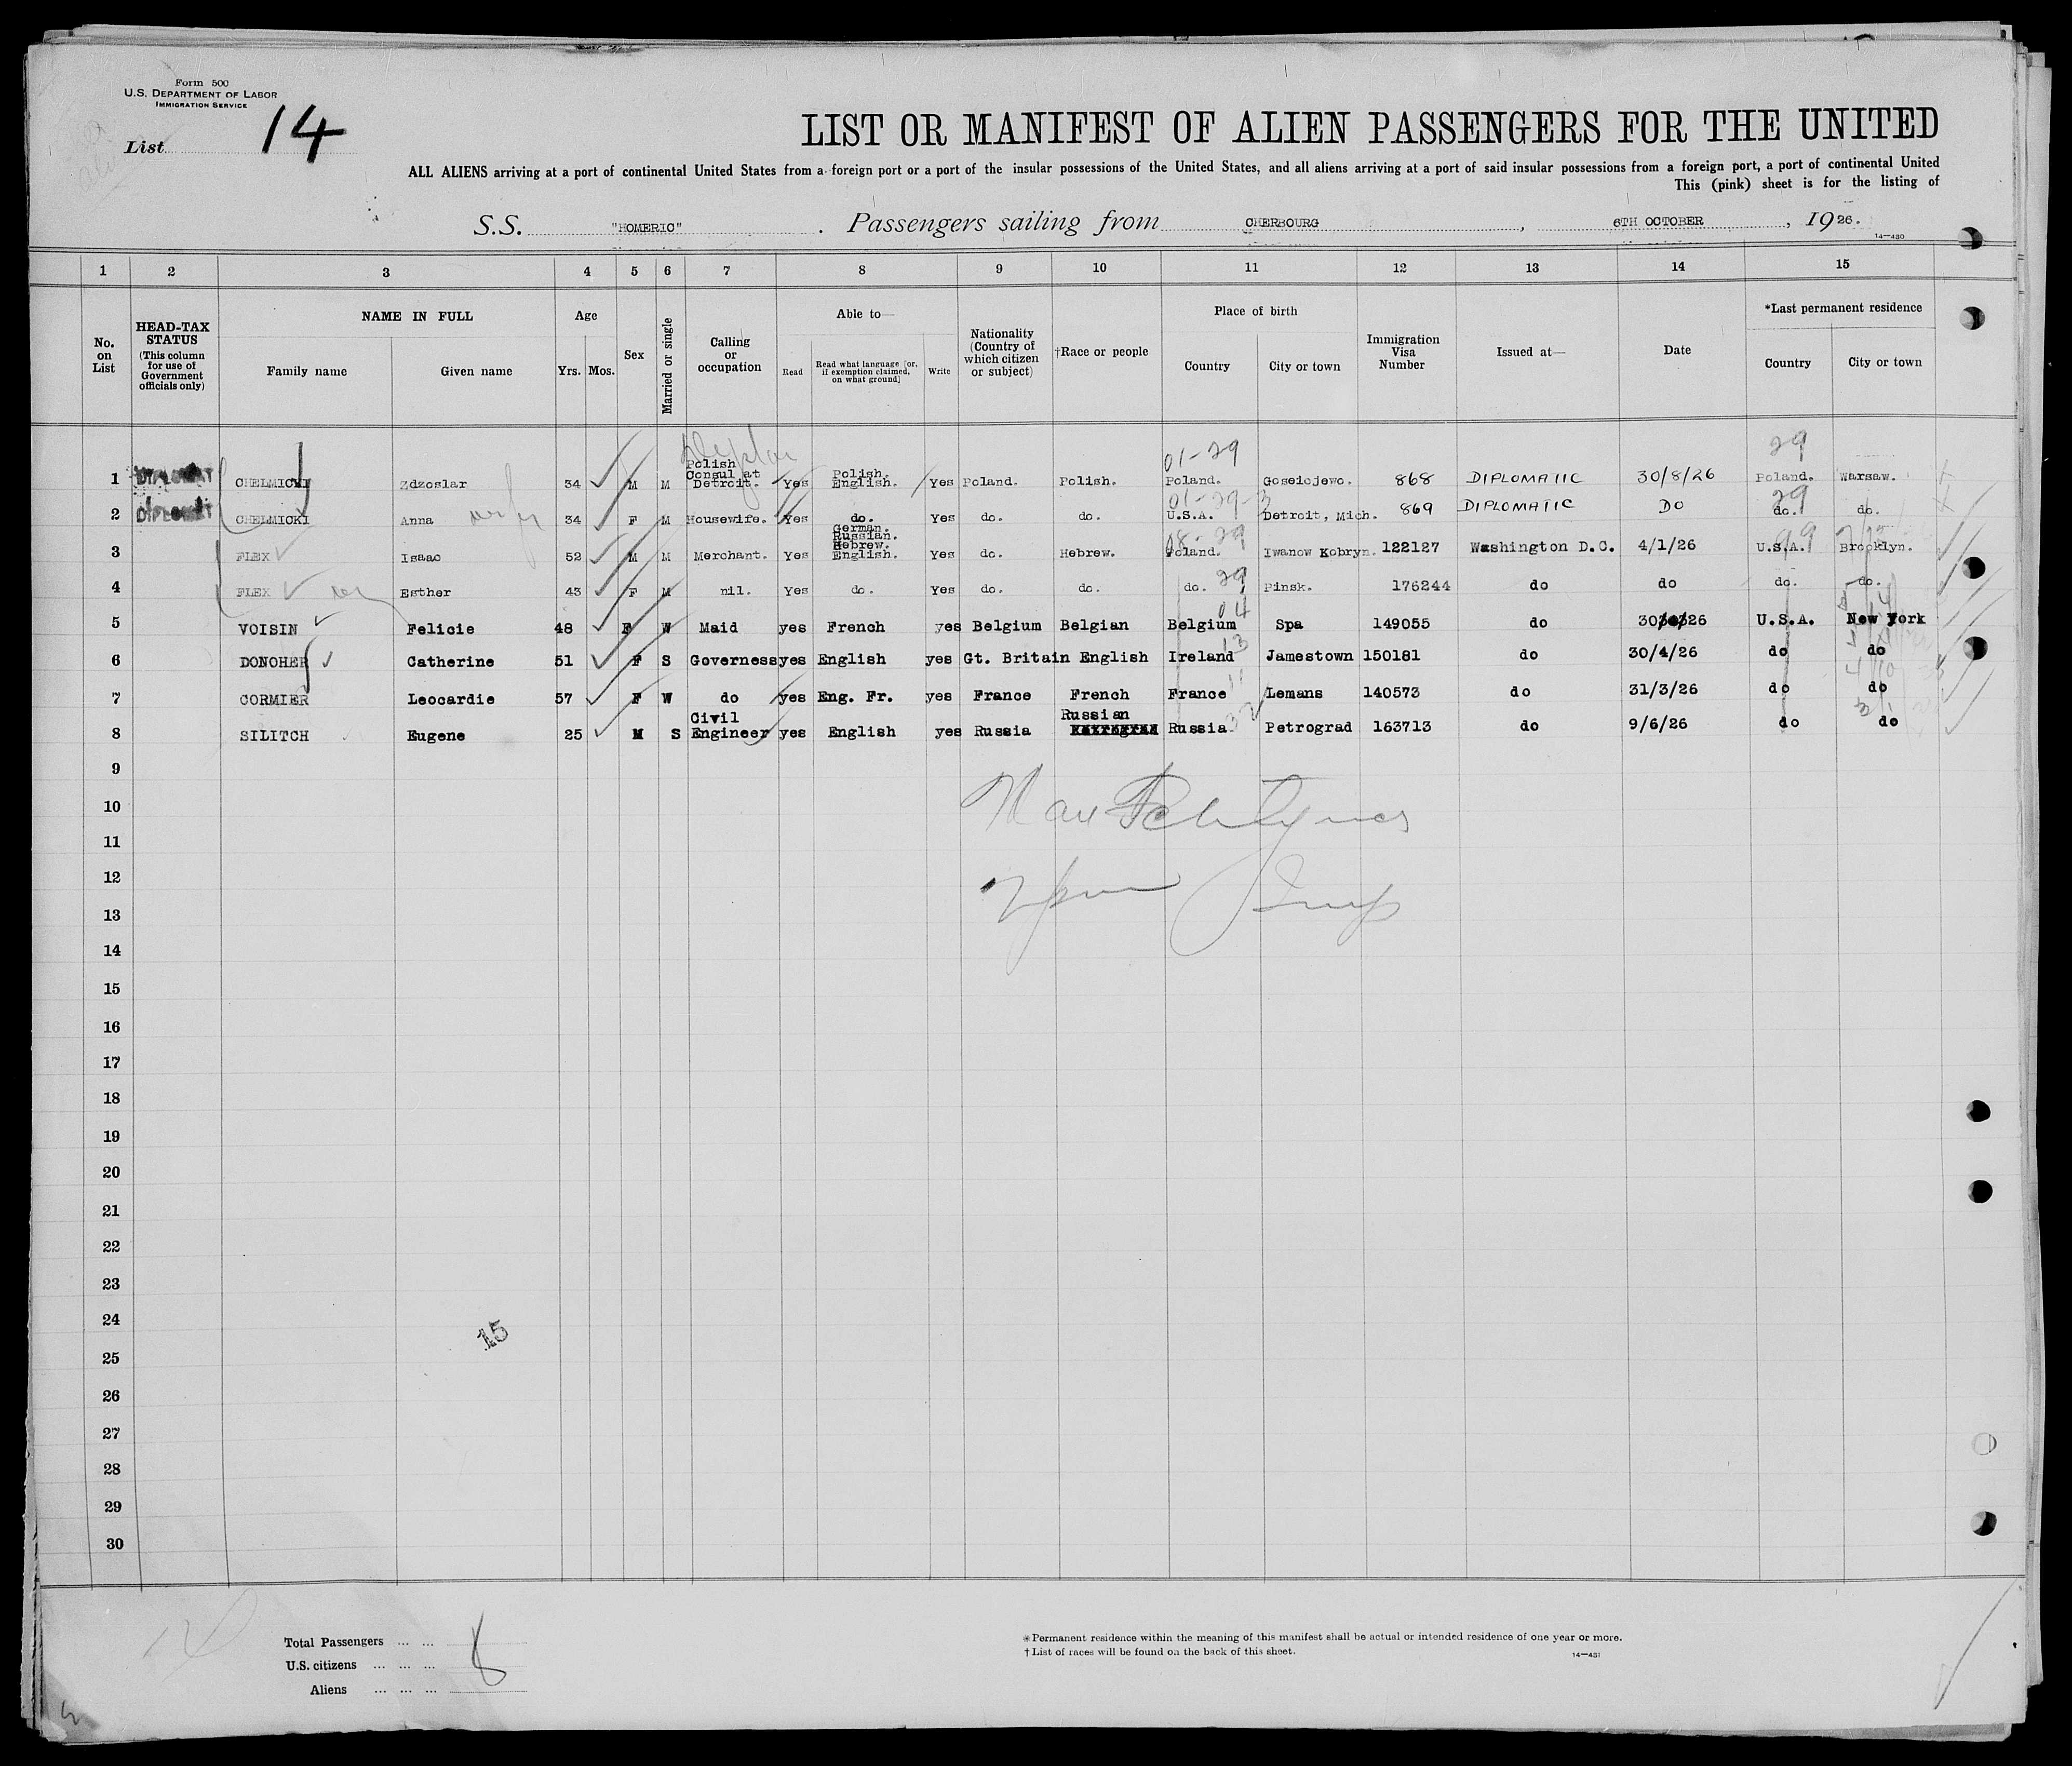 Form 500
U.S. DEPARTMENT OF LABOR
IMMIGRATION SERVICE
List 14
LIST OR MANIFEST OF ALIEN PASSENGERS FOR THE UNITED
ALL ALIENS arriving at a port of continental United States from a foreign port or a port of the insular possessions of the United States, and all aliens arriving at a port of said insular possessions from a foreign port, a port of continental United
This (pink) sheet is for the listing of
S.S. "HOMERIC". Passengers sailing from CHERBOURG, 6TH OCTOBER, 1926.
14—430
1 2 3 4 5 6 7 8 9 10 11 12 13 14 15
No. on List
HEAD-TAX STATUS
(This column for use of Government officials only)
NAME IN FULL
Family name Given name
Age
Yrs. Mos.
Sex
Married or single
Calling or occupation
Able to—
Read
Read what language [or, if exemption claimed, on what ground]
Write
Nationality (Country of which citizen or subject)
†Race or people
Place of birth
Country City or town
Immigration Visa Number
Issued at—
Date
*Last permanent residence
Country City or town
01-29 29
1 DIPLOMAT CHELMICKI Zdzoslar 34 M M Polish Consul at Detroit. Yes Polish. English. Yes Poland. Polish. Poland. Goseiojewo. 868 DIPLOMATIC 30/8/26 Poland. Warsaw.
2 DIPLOMAT CHELMICKI Anna 34 F M Housewife. Yes do. Yes do. do. U.S.A. Detroit, Mich. 869 DIPLOMATIC DO do. do.
3 FLEX Isaac 52 M M Merchant. Yes German. Russian. Hebrew. English. Yes do. Hebrew. Poland. Iwanow Kobryn. 122127 Washington D.C. 4/1/26 U.S.A. Brooklyn.
4 FLEX Esther 43 F M nil. Yes do. Yes do. do. do. 29 Pinsk. 176244 do do do. do.
5 VOISIN Felicie 48 F W Maid yes French yes Belgium Belgian Belgium 04 Spa 149055 do 30/4/26 U.S.A. New York
6 DONOHER Catherine 51 F S Governess yes English yes Gt. Britain English Ireland 13 Jamestown 150181 do 30/4/26 do do
7 CORMIER Leocardie 57 F W do yes Eng. Fr. yes France French France 11 Lemans 140573 do 31/3/26 do do
8 SILITCH Eugene 25 M S Civil Engineer yes English yes Russia Russian Russia Petrograd 163713 do 9/6/26 do do
9
10
11
12
13
14
15
16
17
18
19
20
21
22
23
24
15
25
26
27
28
29
30
Total Passengers ... ...
U.S. citizens ... ... ... 8
Aliens ... ... ...
*Permanent residence within the meaning of this manifest shall be actual or intended residence of one year or more.
†List of races will be found on the back of this sheet.
14—431